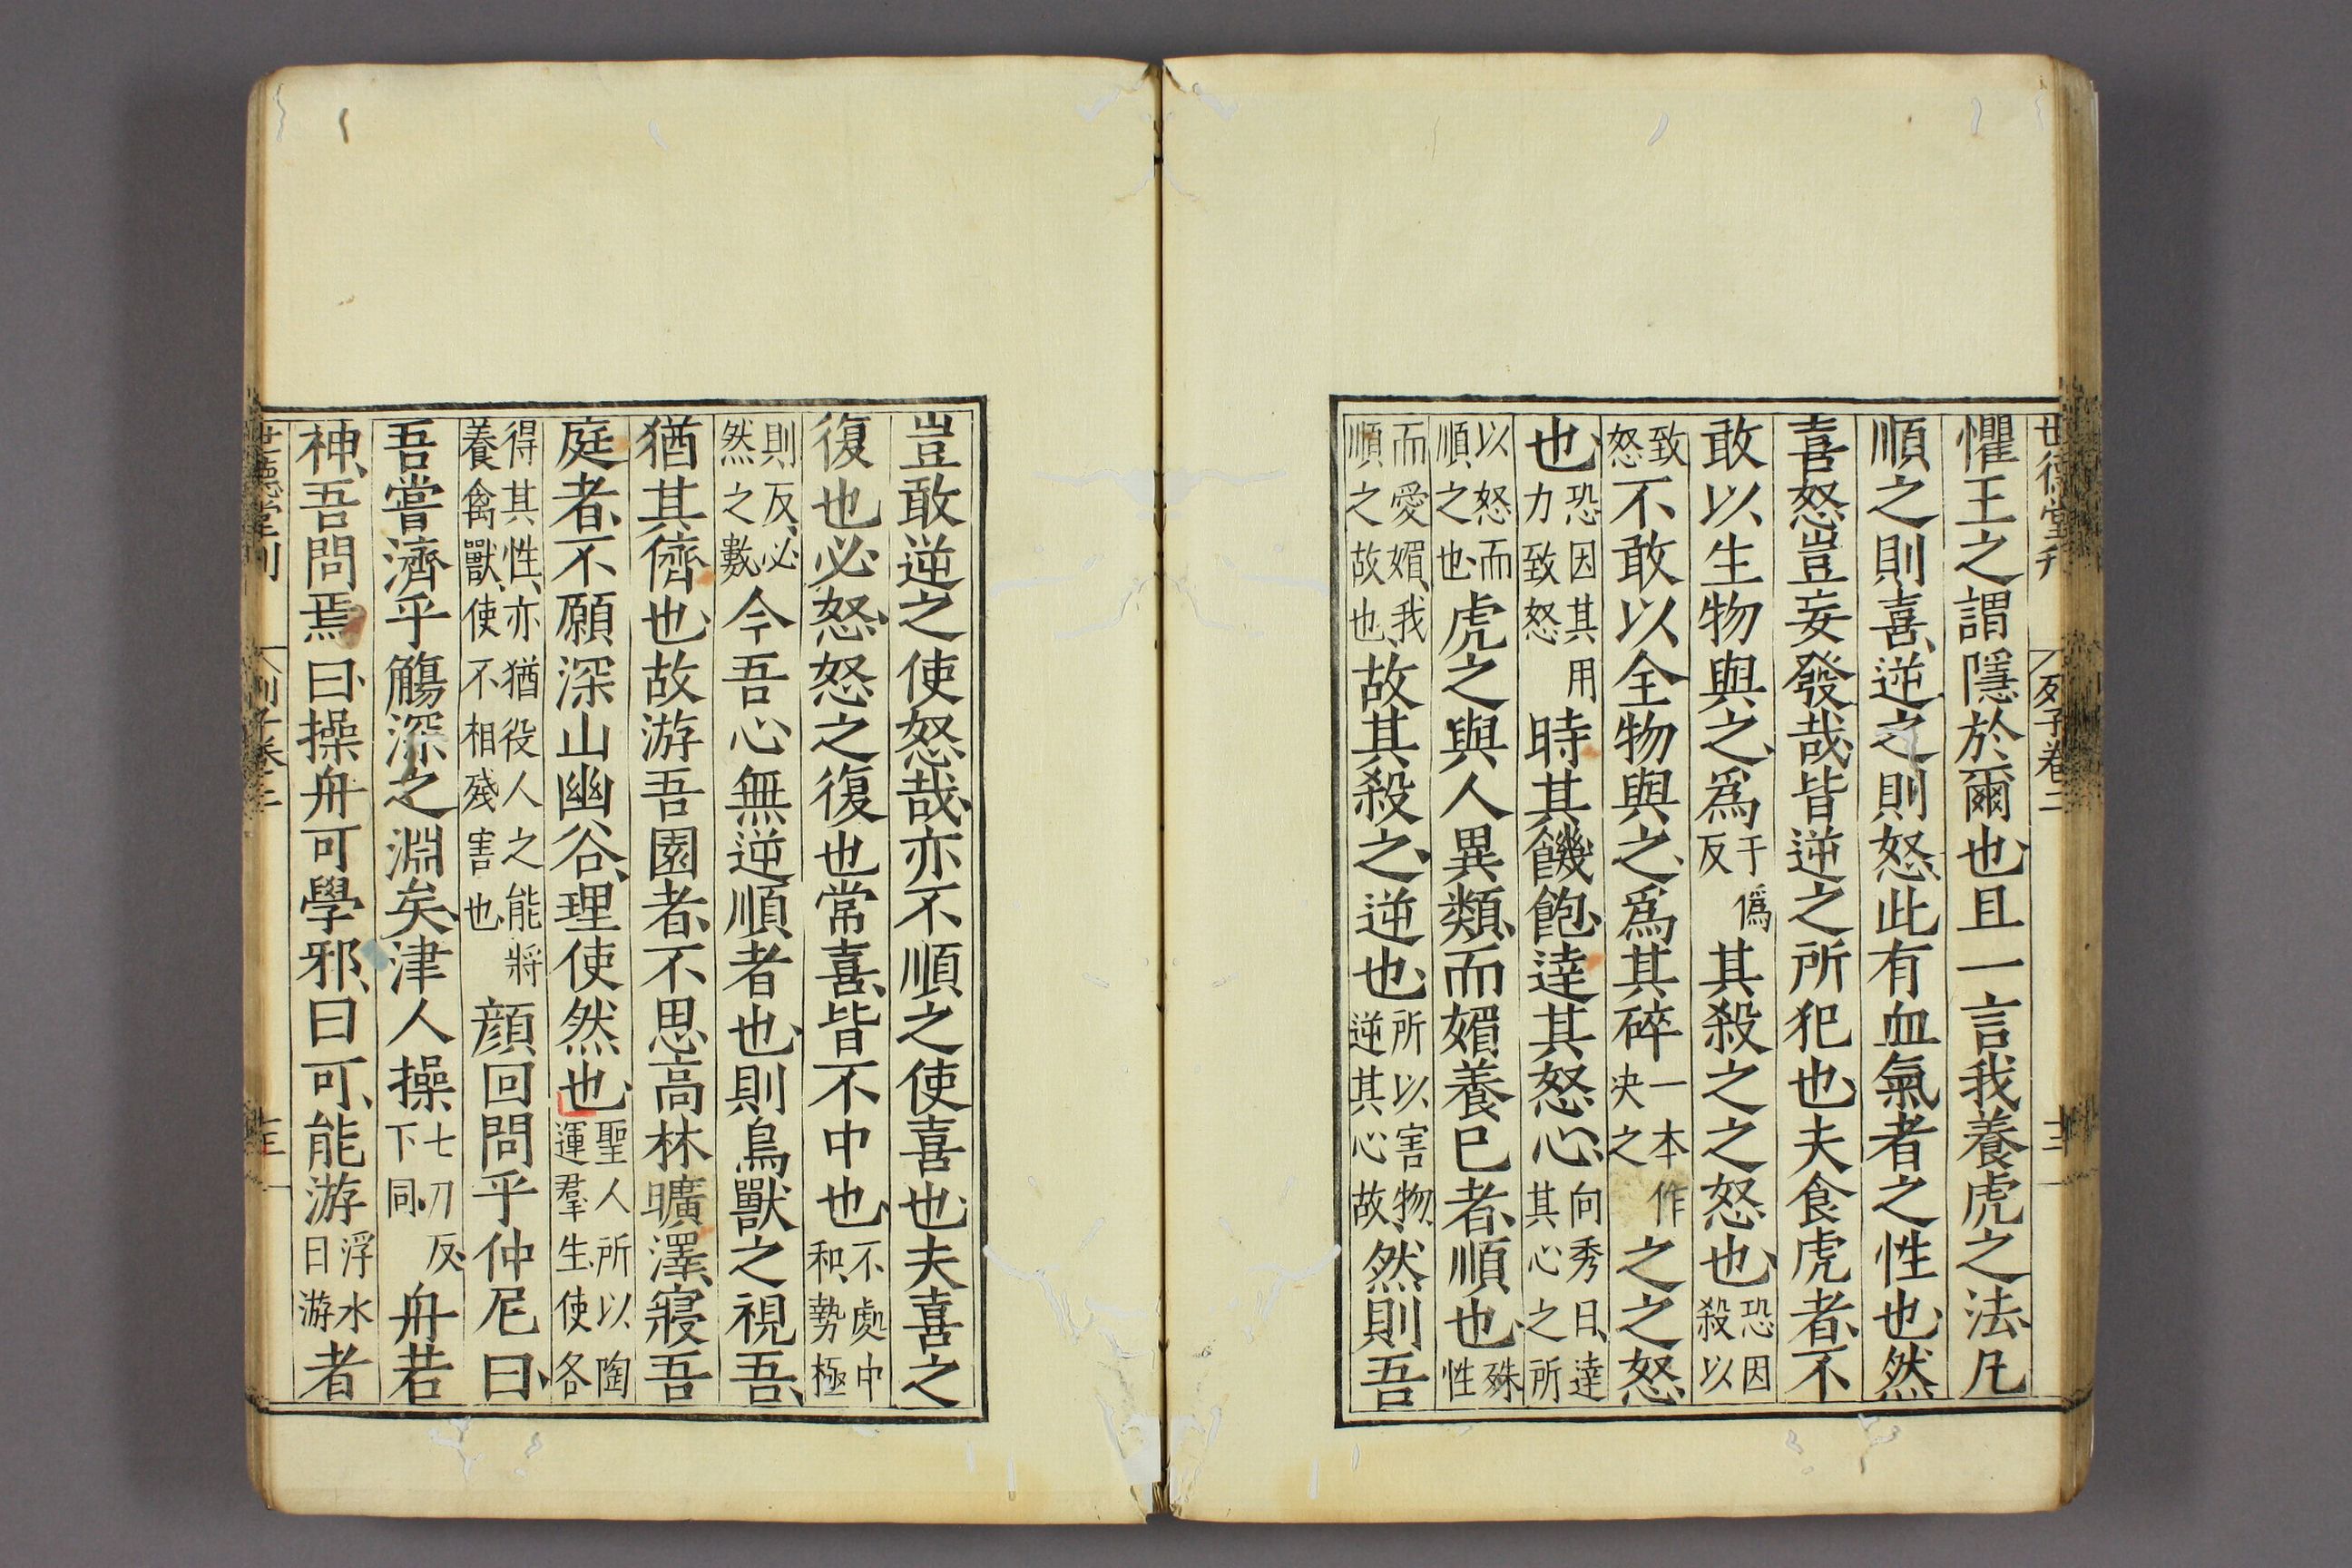 世德堂刊 列子卷二 十二
懼王之謂隱於爾也且一言我養虎之法凡
順之則喜逆之則怒此有血氣者之性也然
喜怒豈妄發哉皆逆之所犯也夫食虎者不
敢以生物與之爲于僞反其殺之之怒也恐因殺以
致怒不敢以全物與之爲其碎一本作决之之之怒
也恐因其用力致怒時其饑飽達其怒心向秀曰達其心之所
以怒而順之也虎之與人異類而媚養已者順也殊性
而愛媚我順之故也故其殺之逆也所以害物逆其心故然則吾
豈敢逆之使怒哉亦不順之使喜也夫喜之
復也必怒怒之復也常喜皆不中也不處中和勢極
則反必然之數今吾心無逆順者也則鳥獸之視吾
猶其儕也故游吾園者不思高林曠澤寢吾
庭者不願深山幽谷理使然也聖人所以陶運羣生使各
得其性亦猶役人之能將養禽獸使不相殘害也顔回問乎仲尼曰
吾嘗濟乎觴深之淵矣津人操七刀反下同舟若
神吾問焉曰操舟可學邪曰可能游浮水曰游者
世德堂刊 列子卷二 十三